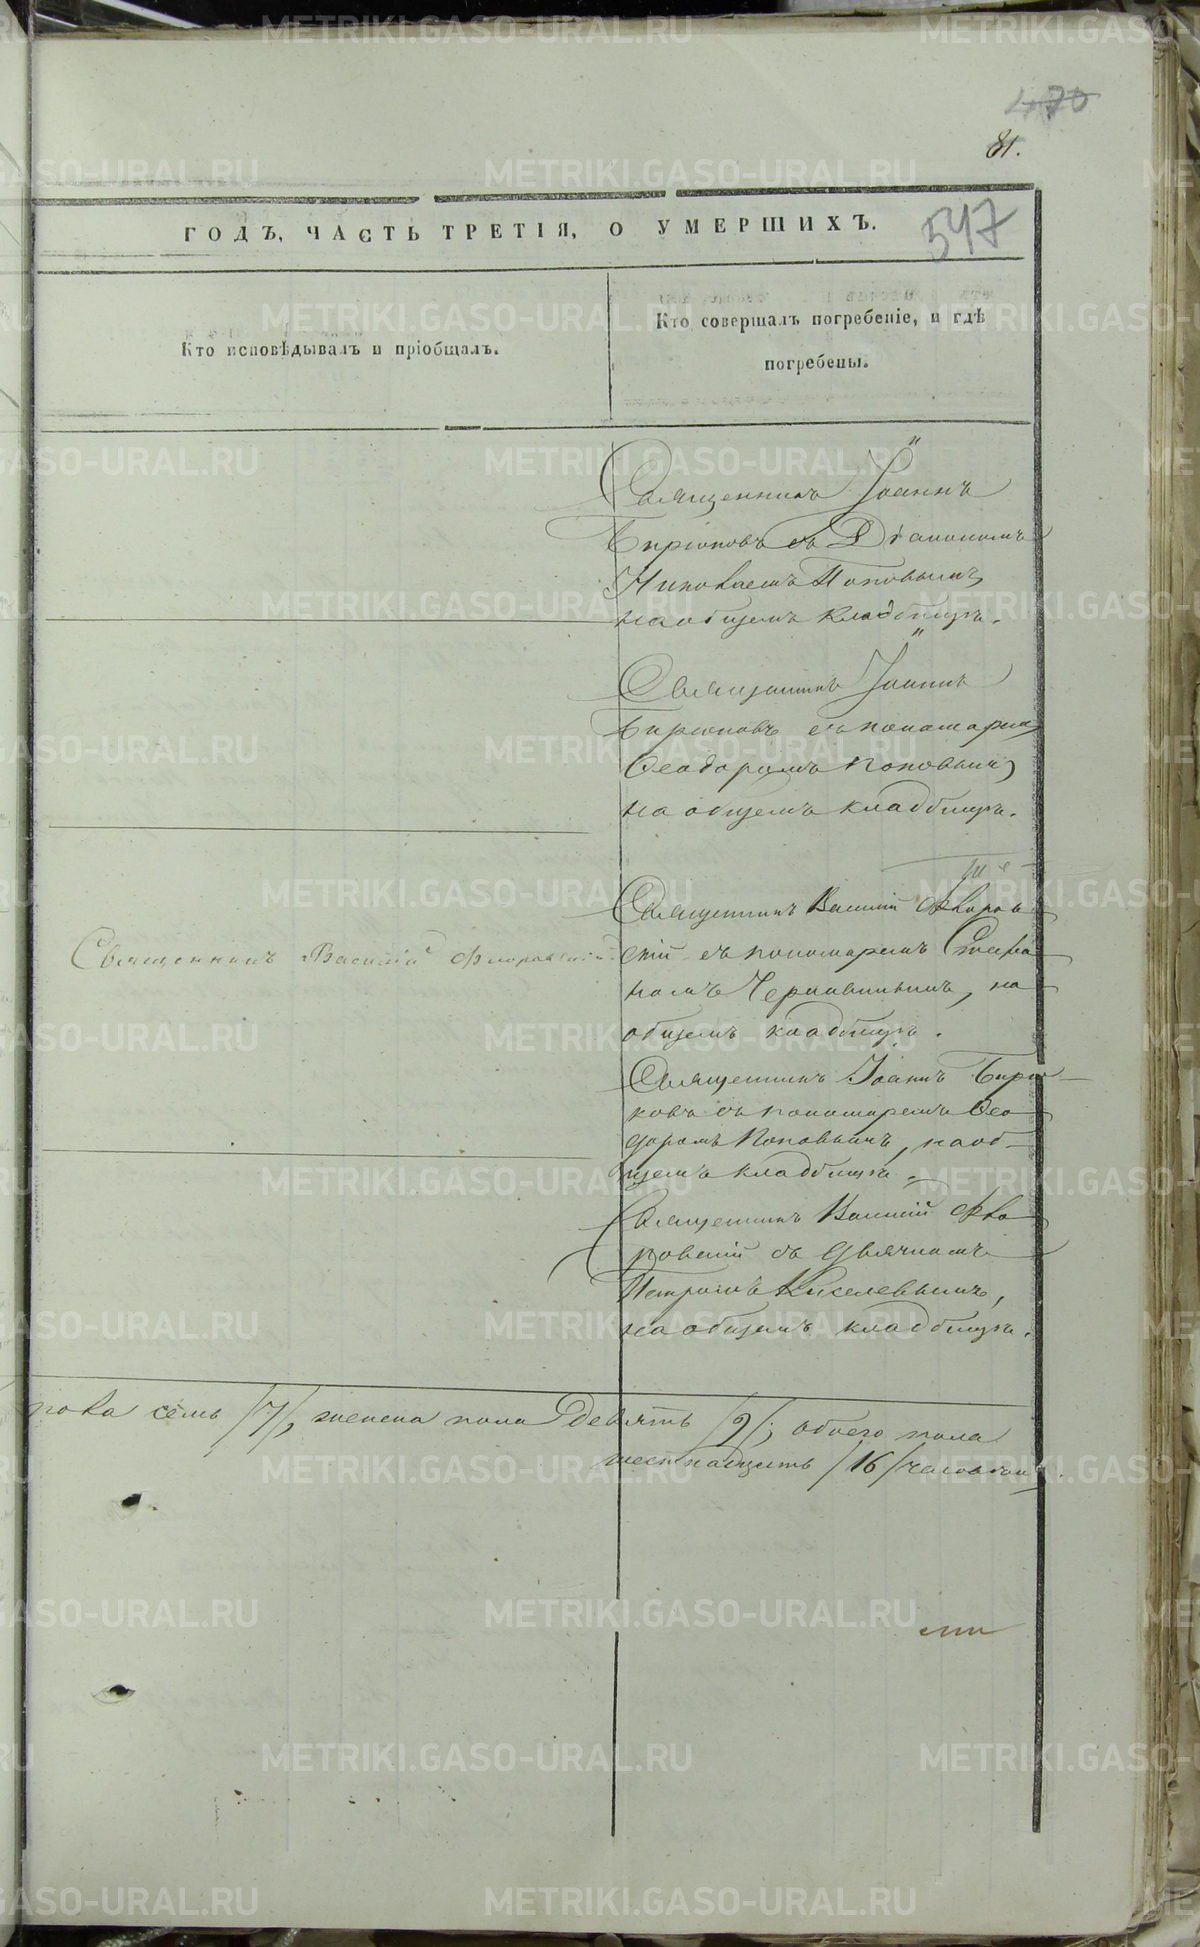 470
81.
ГОДЪ, ЧАСТЬ ТРЕТІЯ, О УМЕРШИХЪ.
547
Кто исповѣдывалъ и пріобщалъ.
Кто совершалъ погребеніе, и гдѣ
погребены.
Священникъ Іоаннъ
Бирюковъ съ Діакономъ
Николаемъ Поповымъ,
на общемъ кладбищѣ.
Священникъ Іоаннъ
Бирюковъ съ пономаремъ
Ѳеодоромъ Поповымъ,
на общемъ кладбищѣ.
Священникъ Василій Флоровскій
Священникъ Василій Флоров
скій съ пономаремъ Стефа
номъ на
общемъ кладбищѣ.
Священникъ Іоаннъ Бирю
ковъ съ пономаремъ Ѳео
доромъ Поповымъ, на об-
щемъ кладбищѣ.
Священникъ Василій Фло
ровскій съ дьячкомъ
Петромъ Киселевымъ,
на общемъ кладбищѣ.
пола семь /7/, женска пола девять /9/, обоего пола
шестнадцать /16/ человѣкъ.
METRIKI.GASO-URAL.RU